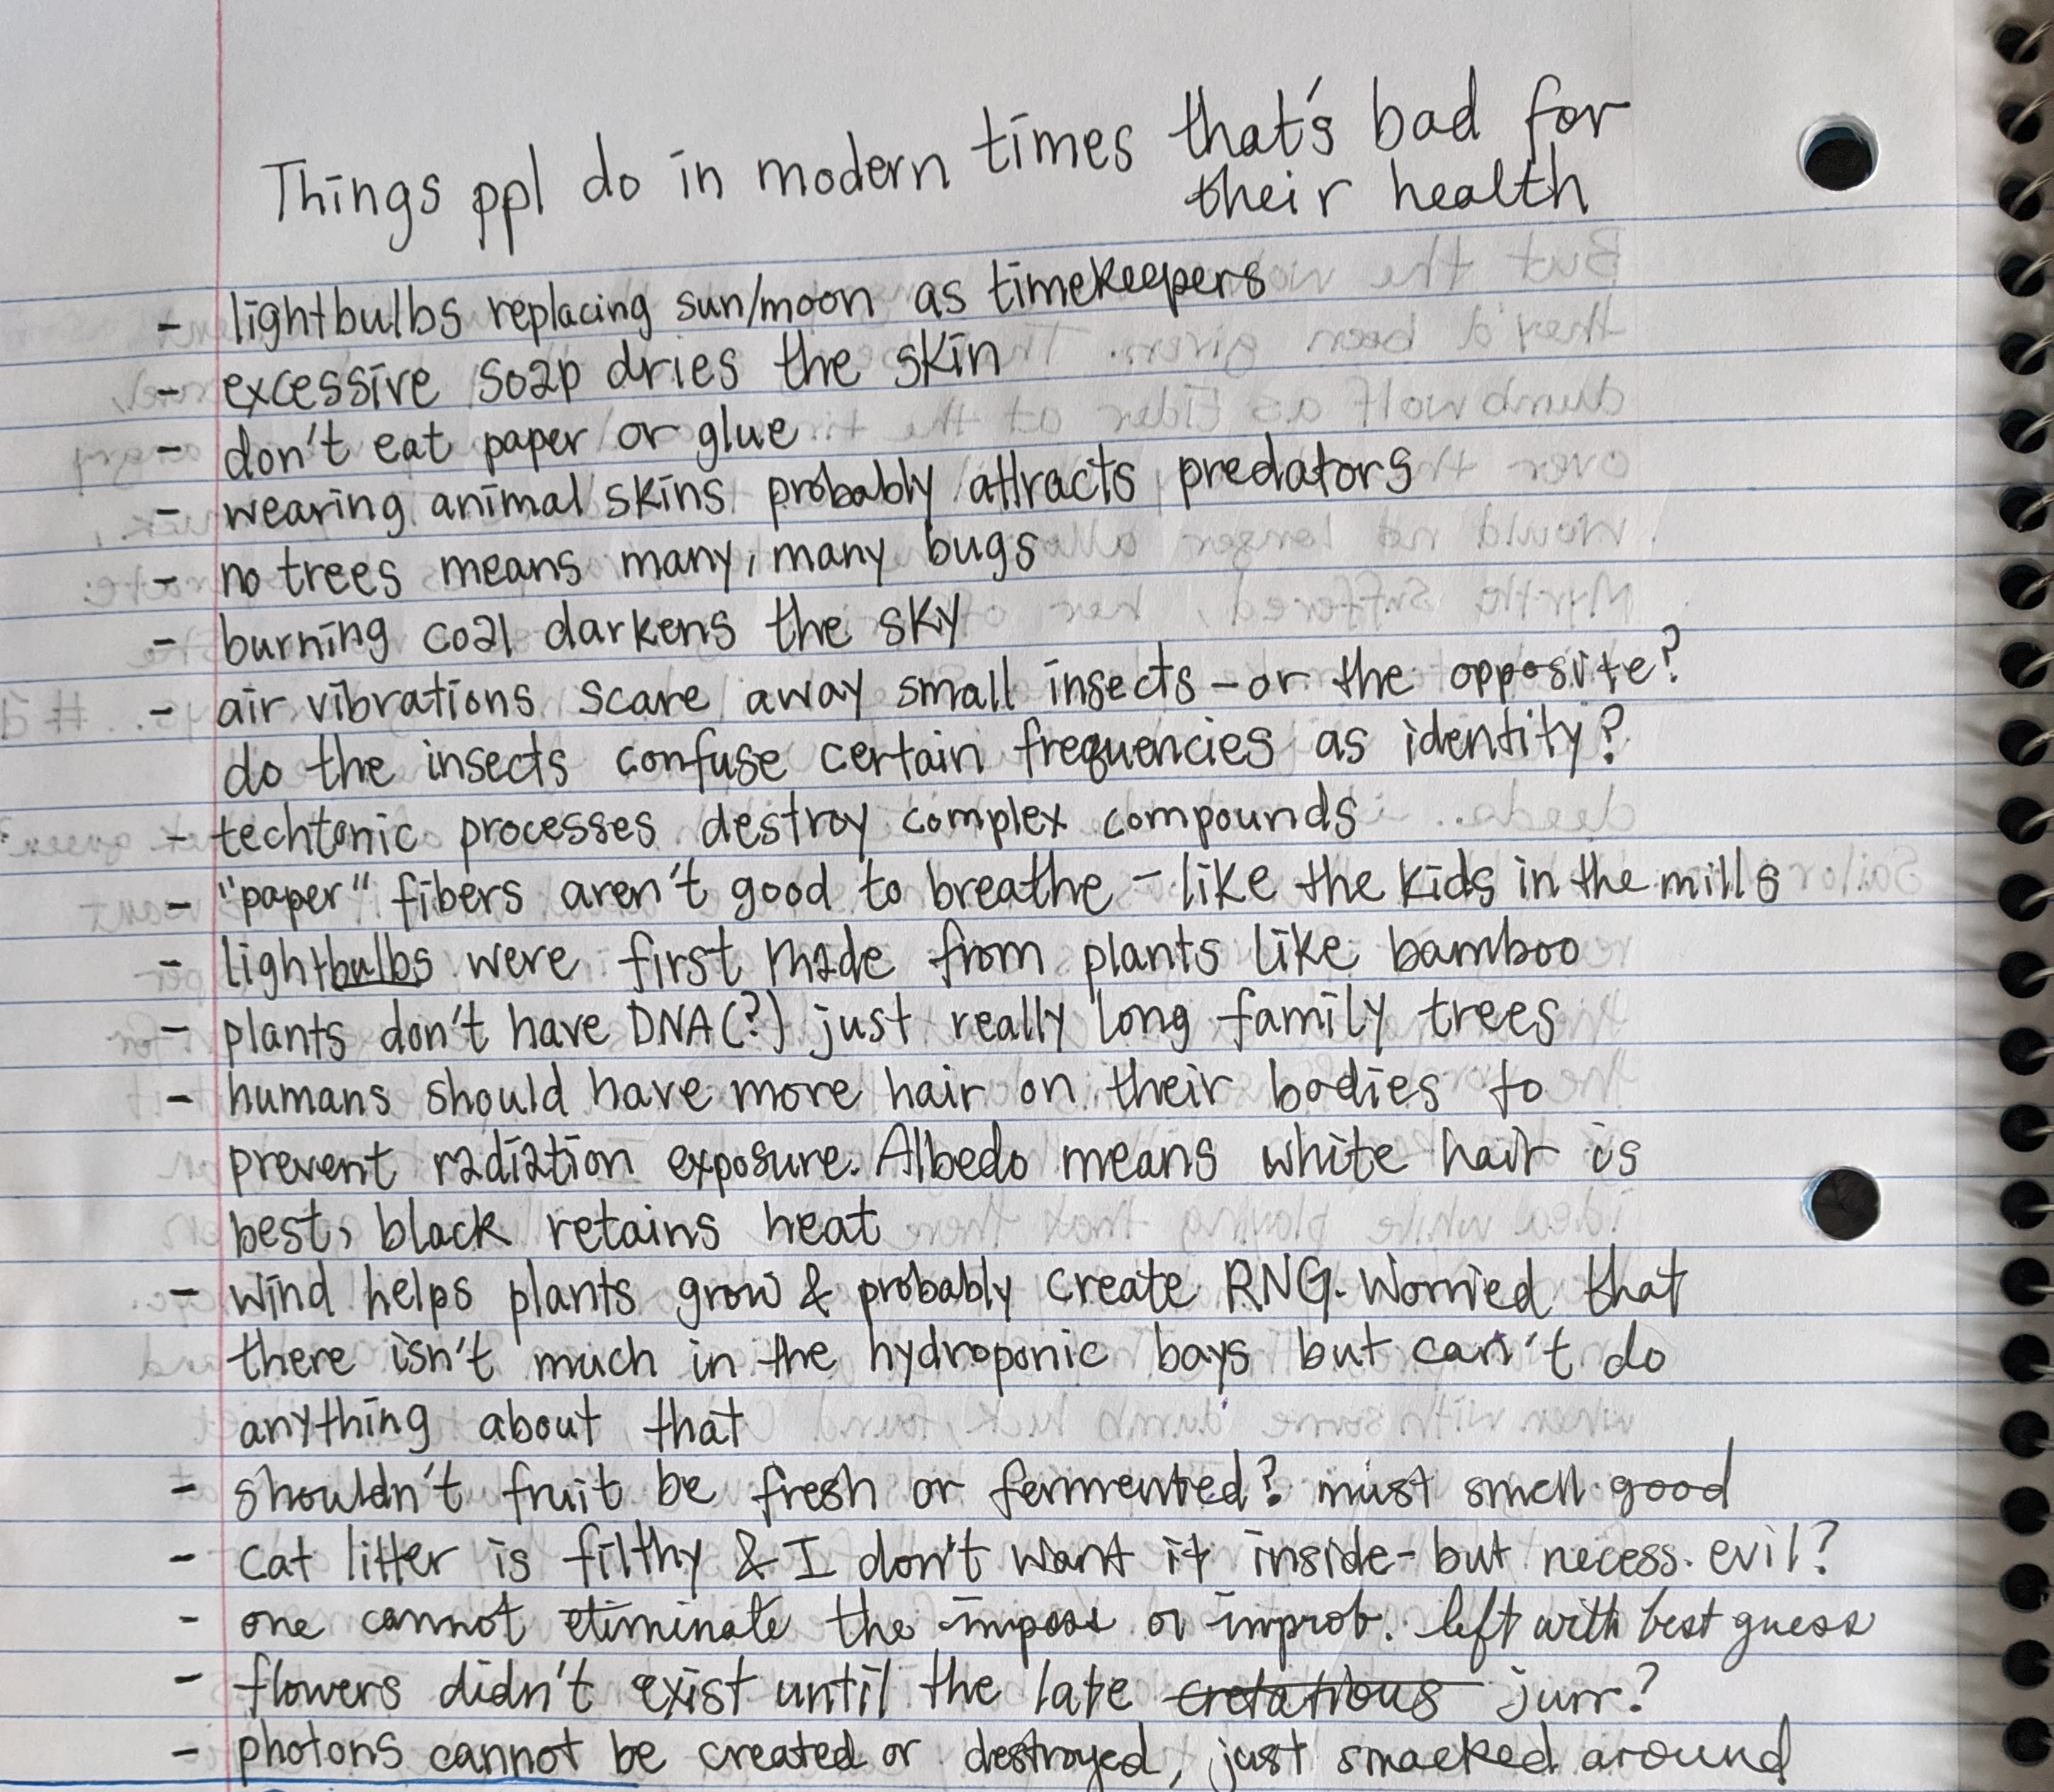 Things ppl do in modern times that's bad for
their health
- lightbulbs replacing sun/moon as timekeepers
- excessive soap dries the skin
- don't eat paper or glue
- wearing animal skins probably attracts predators
- no trees means many, many bugs
- burning coal darkens the sky
- air vibrations scare away small insects - or the opposite?
do the insects confuse certain frequencies as identity?
- techtonic processes destroy complex compounds
- "paper" fibers aren't good to breathe - like the kids in the mills
- lightbulbs were first made from plants like bamboo
- plants don't have DNA(?) just really long family trees
- humans should have more hair on their bodies to
prevent radiation exposure. Albedo means white hair is
best, black retains heat
- wind helps plants grow & probably create RNG. Worried that
there isn't much in the hydroponic bays but can't do
anything about that
- shouldn't fruit be fresh or fermented? must smell good
- cat litter is filthy & I don't want it inside - but necess. evil?
- one cannot eliminate the imposs or improb. left with best guess
- flowers didn't exist until the late cretatious jurr?
- photons cannot be created or destroyed, just smacked around